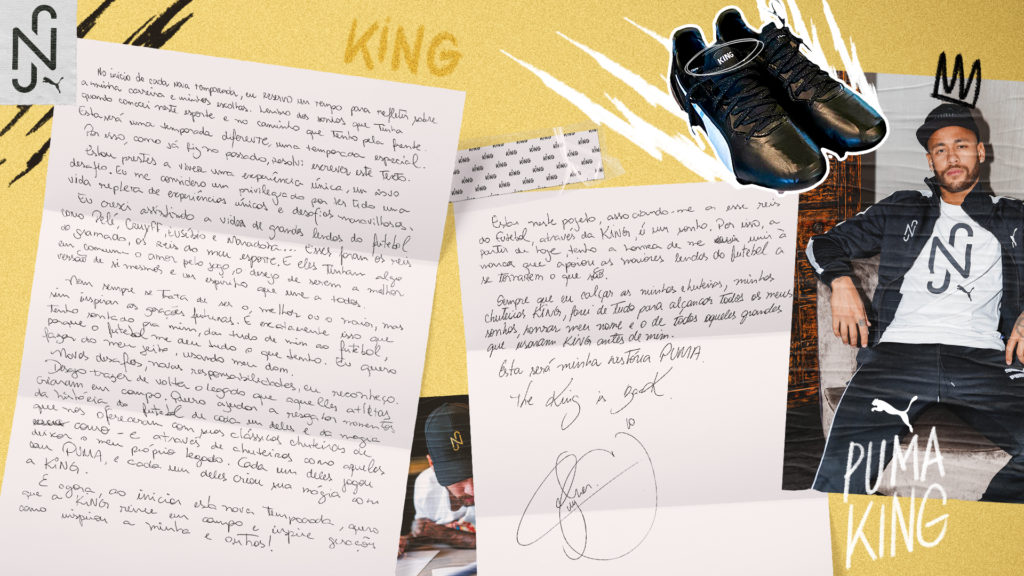 KING
No início de cada nova temporada, eu reservo um tempo para refletir sobre
a minha carreira e minhas escolhas. Lembro dos sonhos que tinha
quando comecei neste esporte e no caminho que tenho pela frente.
Esta será uma temporada diferente, uma temporada especial.
Por isso, como já fiz no passado, resolvi escrever este texto.
Estou prestes a viver uma experiência única, um novo
desafio. Eu me considero um privilegiado por ter tido uma
vida repleta de experiências únicas e desafios maravilhosos.
Eu cresci assistindo a vídeos de grandes lendas do futebol
como Pelé, Cruyff, Eusébio e Maradona... Esses foram os reis
do gramado, os reis do meu esporte. E eles tinham algo
em comum: o amor pelo jogo, o desejo de serem a melhor
versão de si mesmos e um espírito que une a todos.
Nem sempre se trata de ser o melhor ou o maior, mas
sim inspirar as gerações futuras. E exatamente isso que
tenho sonhado pra mim, dar tudo de mim ao futebol,
porque o futebol me deu tudo o que tenho. Eu quero
fazer do meu jeito, usando meu dom.
Novos desafios, novas responsabilidades, eu reconheço.
Desejo trazer de volta o legado que aqueles atletas
criaram em campo. Quero ajudar a resgatar momentos
da história do futebol de cada um deles e da magia
que nos ofereceram com suas clássicas chuteiras de
couro - e através de chuteiras como aquelas
deixar o meu próprio legado. Cada um deles jogou
com PUMA, e cada um deles criou sua mágica com
a KING.
E agora, ao iniciar esta nova temporada, quero
que a KING reine em campo e inspire gerações
como inspirou a minha e outras!
KING
Estar neste projeto, associando-me a esse reis
do futebol, através da KING, é um sonho. Por isso, a
partir de hoje, tenho a honra de me unir à
marca que apoiou as maiores lendas do futebol a
se tornarem o que são.
Sempre que eu calçar as minhas chuteiras, minhas
chuteiras KING, farei de tudo para alcançar todos os meus
sonhos, honrar meu nome e o de todos aqueles grandes
que usaram KING antes de mim.
Esta será minha história PUMA.
The King is Back
10
KING
PUMA
KING